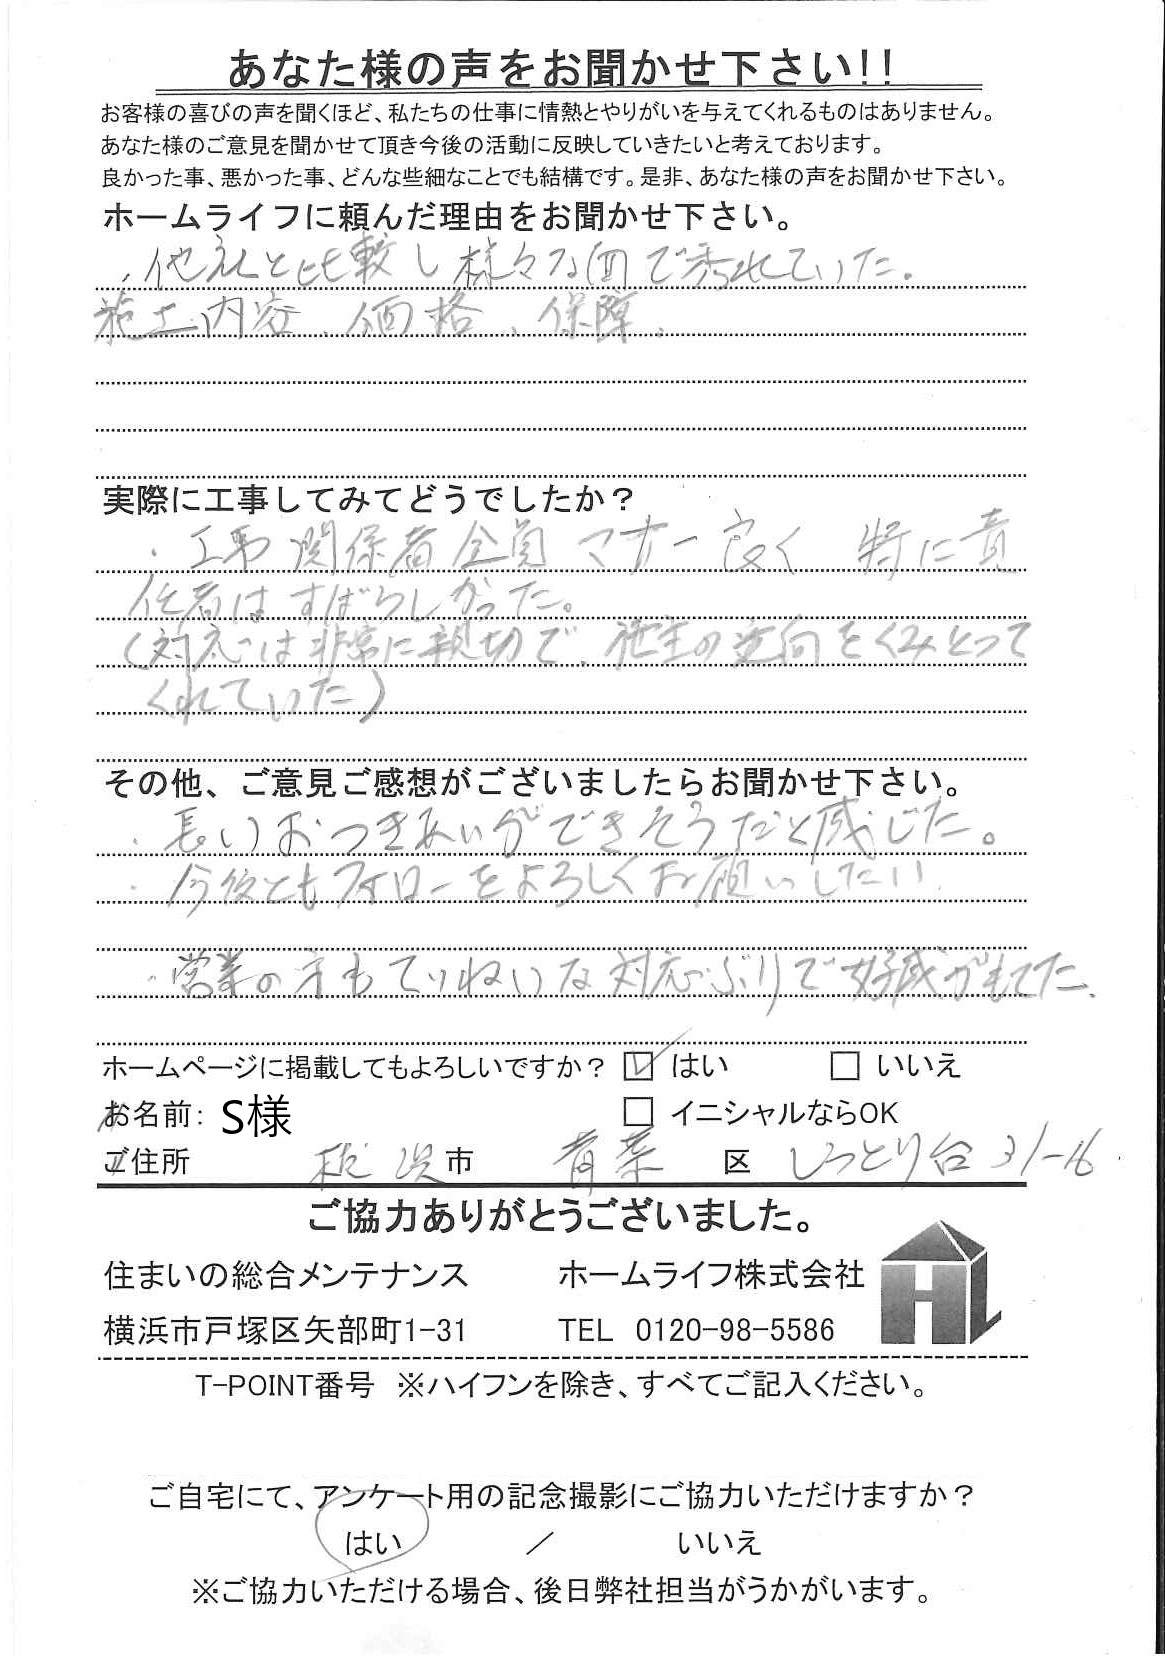 あなた様の声をお聞かせ下さい!!
お客様の喜びの声を聞くほど、私たちの仕事に情熱とやりがいを与えてくれるものはありません。
あなた様のご意見を聞かせて頂き今後の活動に反映していきたいと考えております。
良かった事、悪かった事、どんな些細なことでも結構です。是非、あなた様の声をお聞かせ下さい。
ホームライフに頼んだ理由をお聞かせ下さい。
・他社と比較し様々な面で秀れていた。
施工内容、価格、保障、
実際に工事してみてどうでしたか?
・工事関係者全員マナー良く 特に責
任者はすばらしかった。
(対応は非常に親切で、施主の意向をくみとって
くれていた)
その他、ご意見ご感想がございましたらお聞かせ下さい。
・長いおつきあいができそうだと感じた。
・今後ともフォローをよろしくお願いしたい
・営業の方もていねいな対応ぶりで好感がもてた、
ホームページに掲載してもよろしいですか? ☑ はい □ いいえ
お名前: S様 □ イニシャルならOK
ご住所 横浜市 青葉 区 しらとり台 31-16
ご協力ありがとうございました。
住まいの総合メンテナンス ホームライフ株式会社
横浜市戸塚区矢部町1-31 TEL 0120-98-5586
HL
T-POINT番号 ※ハイフンを除き、すべてご記入ください。
ご自宅にて、アンケート用の記念撮影にご協力いただけますか?
はい / いいえ
※ご協力いただける場合、後日弊社担当がうかがいます。